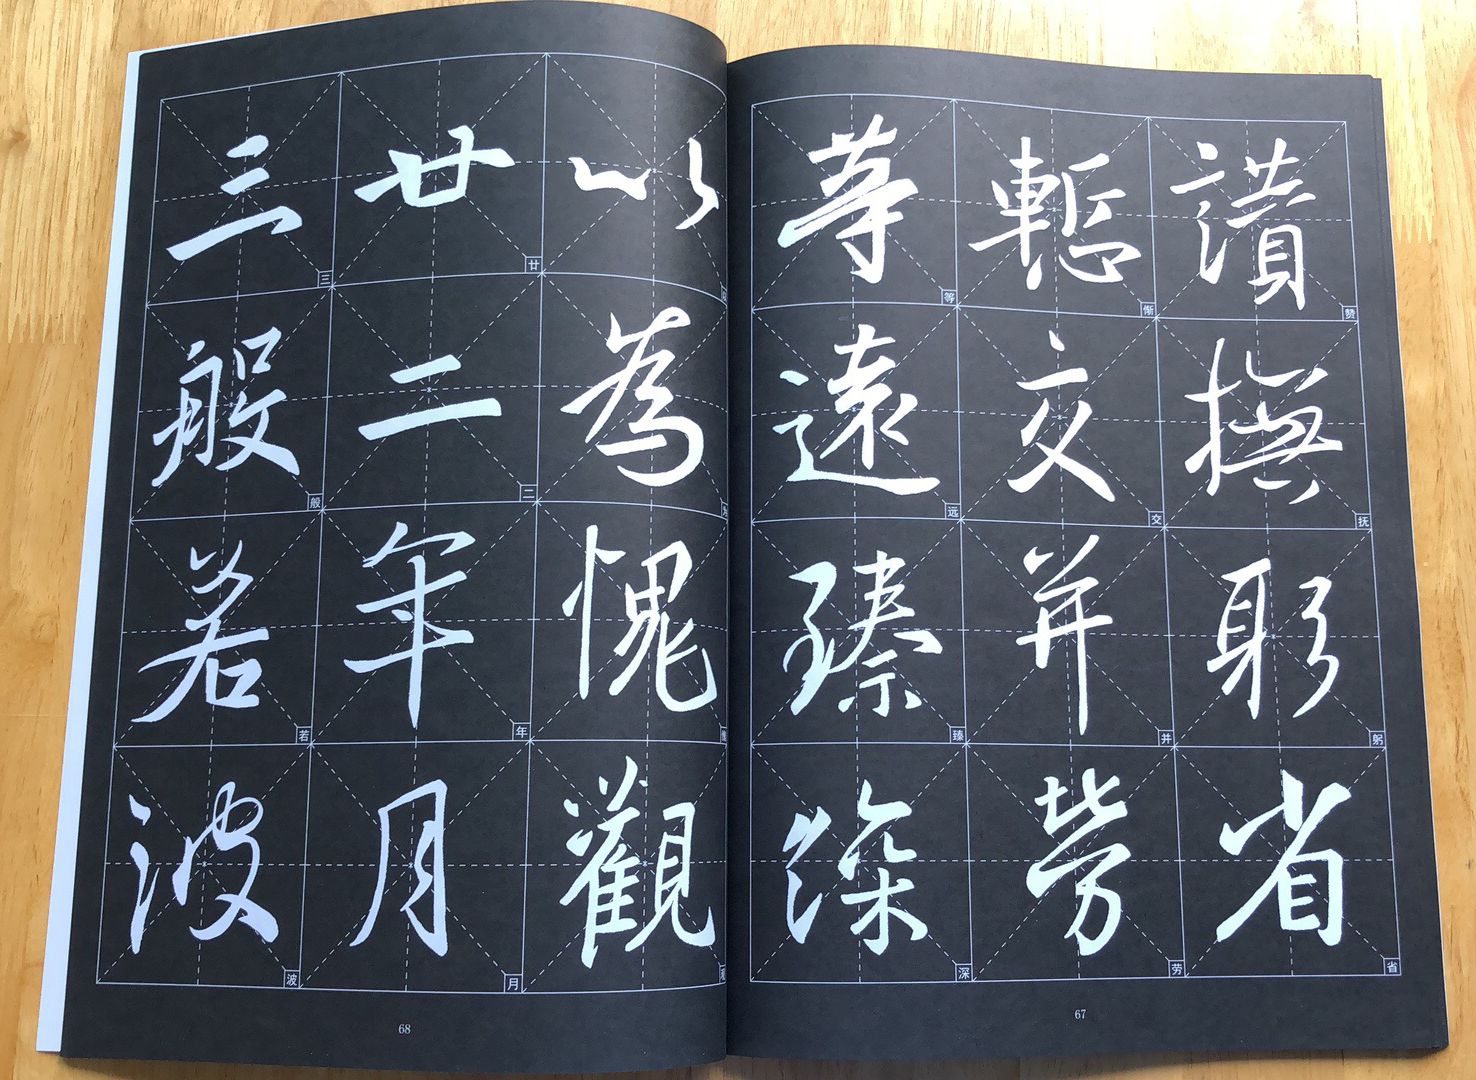 讚撫躬省
赞抚躬省
慙交并勞
惭交并劳
等遠臻深
等远臻深
67
以為愧觀
廿二年月
廿二年月
三般若波
三般若波
68